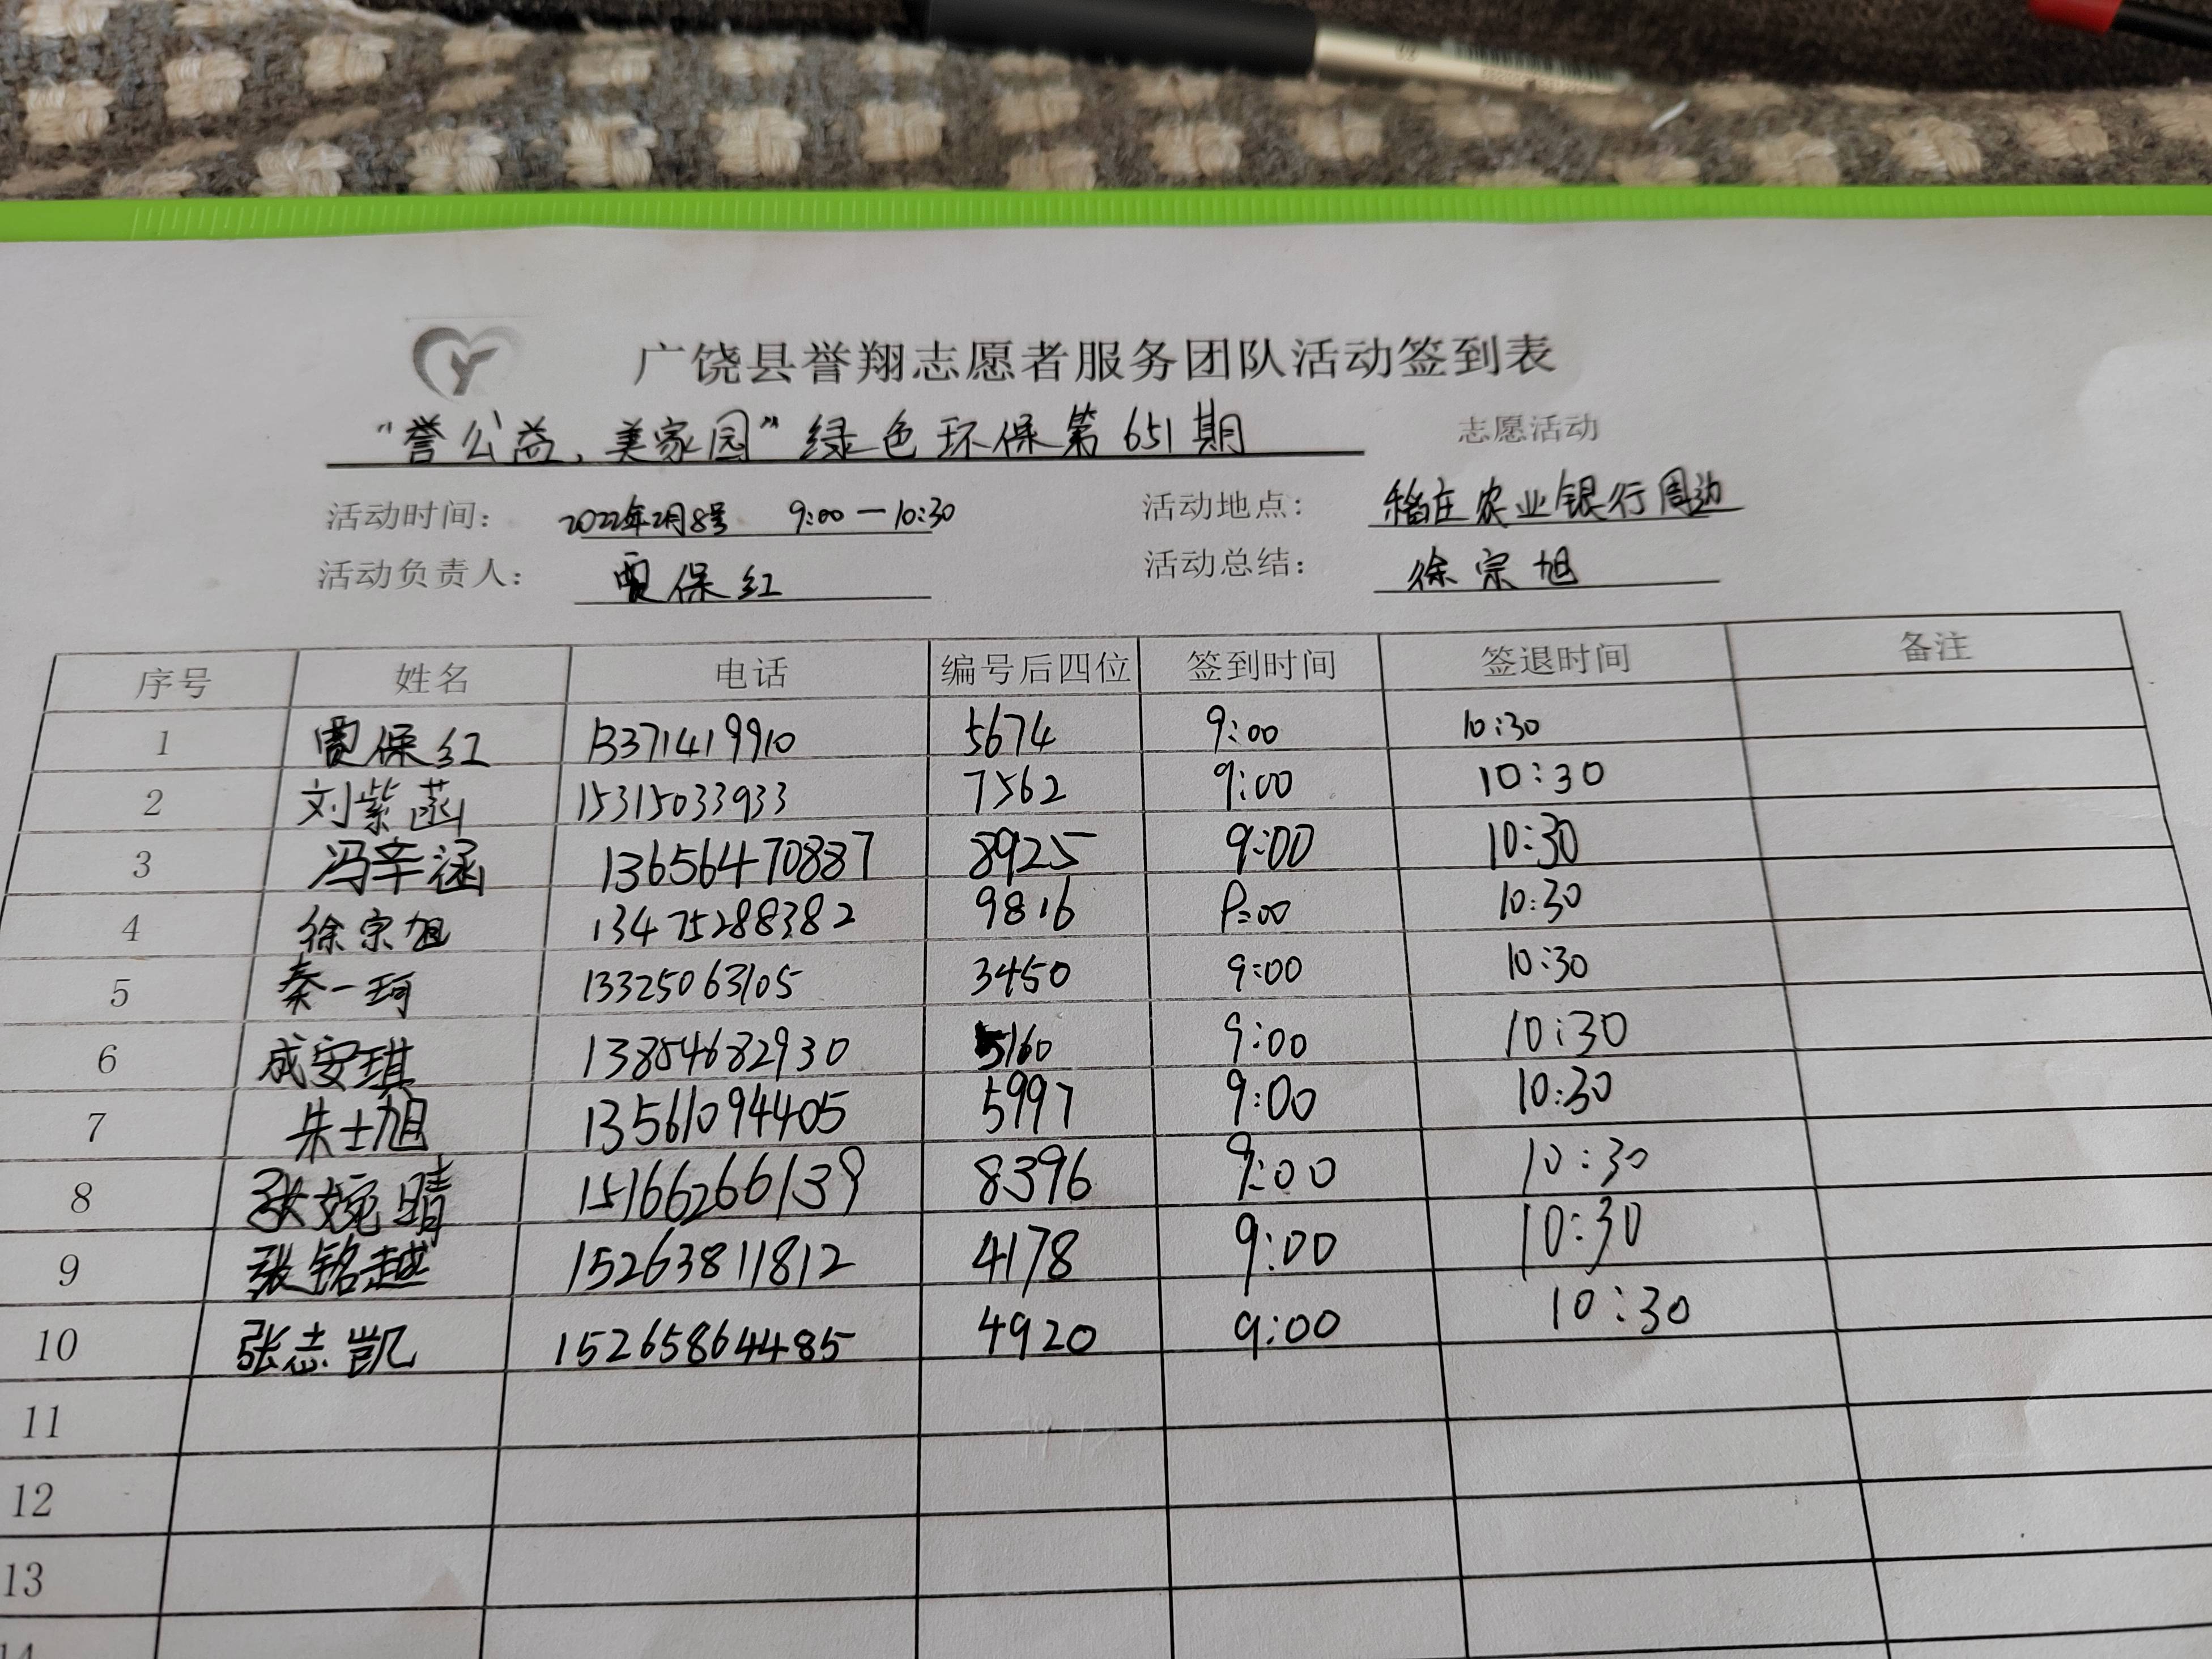 广饶县誉翔志愿者服务团队活动签到表
“誉公益、美家园”绿色环保第651期 志愿活动
活动时间: 2022年2月8号 9:00—10:30 活动地点: 稻庄农业银行周边
活动负责人: 贾保红 活动总结: 徐宗旭
序号 姓名 电话 编号后四位 签到时间 签退时间 备注
1 贾保红 13371419910 5674 9:00 10:30
2 刘紫菡 15315033933 7562 9:00 10:30
3 冯辛涵 13656470887 8925 9:00 10:30
4 徐宗旭 13475288382 9816 9:00 10:30
5 秦一珂 13325063105 3450 9:00 10:30
6 成安琪 13854682930 5160 9:00 10:30
7 朱士旭 13561094405 5997 9:00 10:30
8 张婉晴 15166266139 8396 9:00 10:30
9 张铭越 15263811812 4178 9:00 10:30
10 张志凯 15265864485 4920 9:00 10:30
11
12
13
14